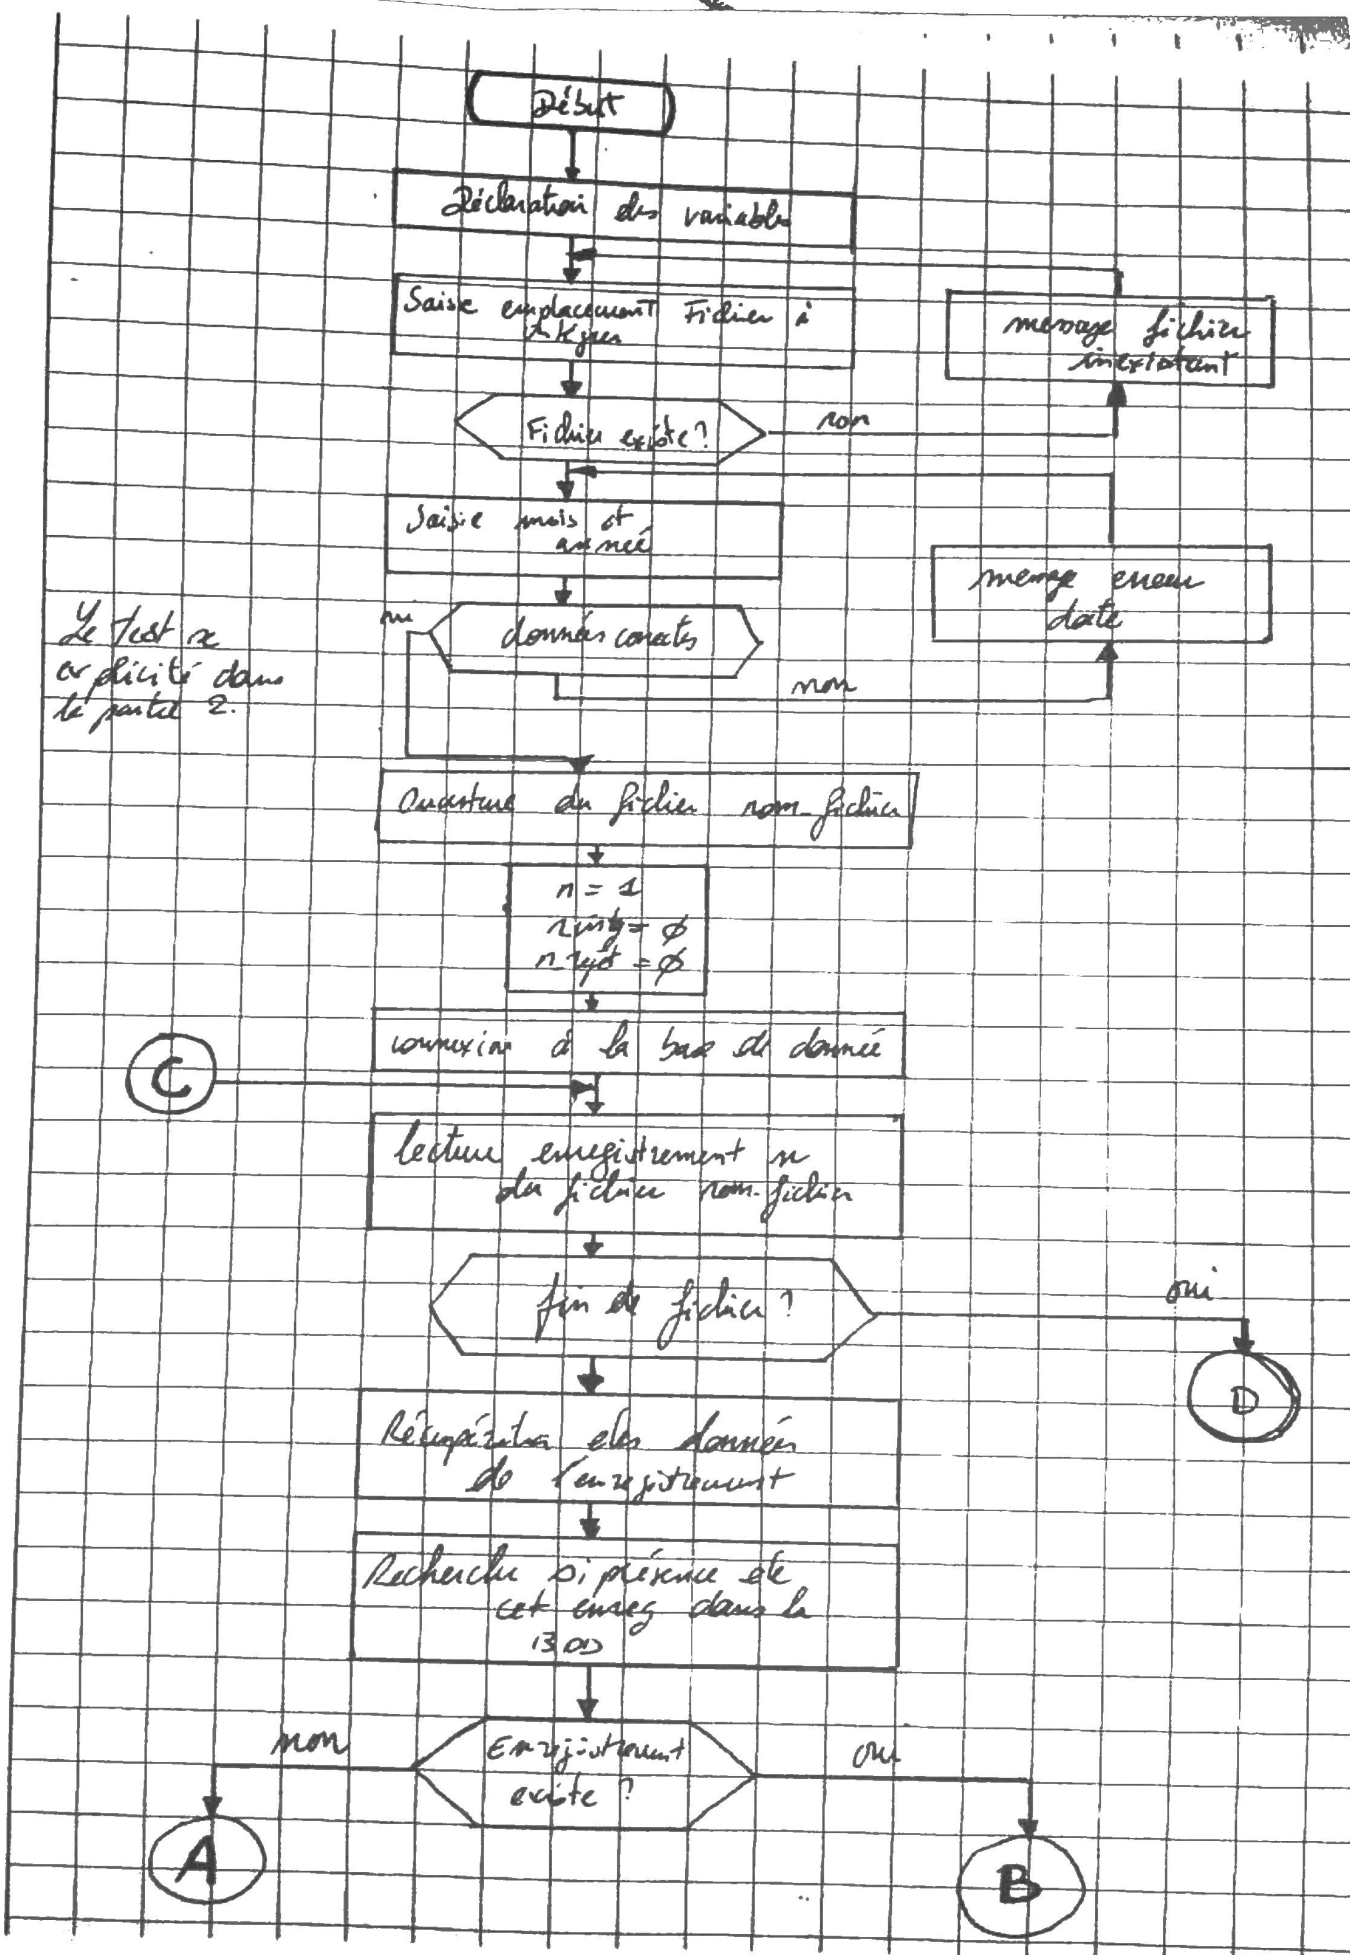 Début
Déclaration des variables
Saisie emplacement Fichier à
message fichier
inexistant
Fichier existe?
non
Saisie mois et
année
message erreur
date
données correctes
non
Le test
explicité dans
la partie 2.
Ouverture du fichier nom-fichier
n = 1
= ø
= ø
connexion à la base de donnée
C
lecture enregistrement n
du fichier nom-fichier
fin de fichier?
oui
D
Récupération des données
de l'enregistrement
Recherche si présence de
cet enreg dans la
BDD
Enregistrement
existe?
non
oui
A
B